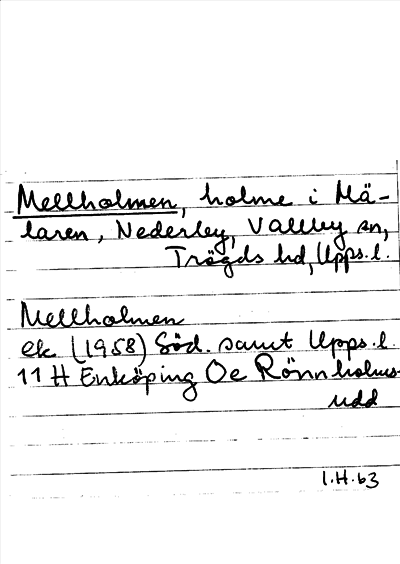 Mellholmen, holme i Mä-
laren, Nederby, Vallby sn,
Trögds hd, Upps. l.
Mellholmen
ek. (1958) Söd. samt Upps. l.
11 H Enköping Oe Rönnholms-
udd
I.H.63